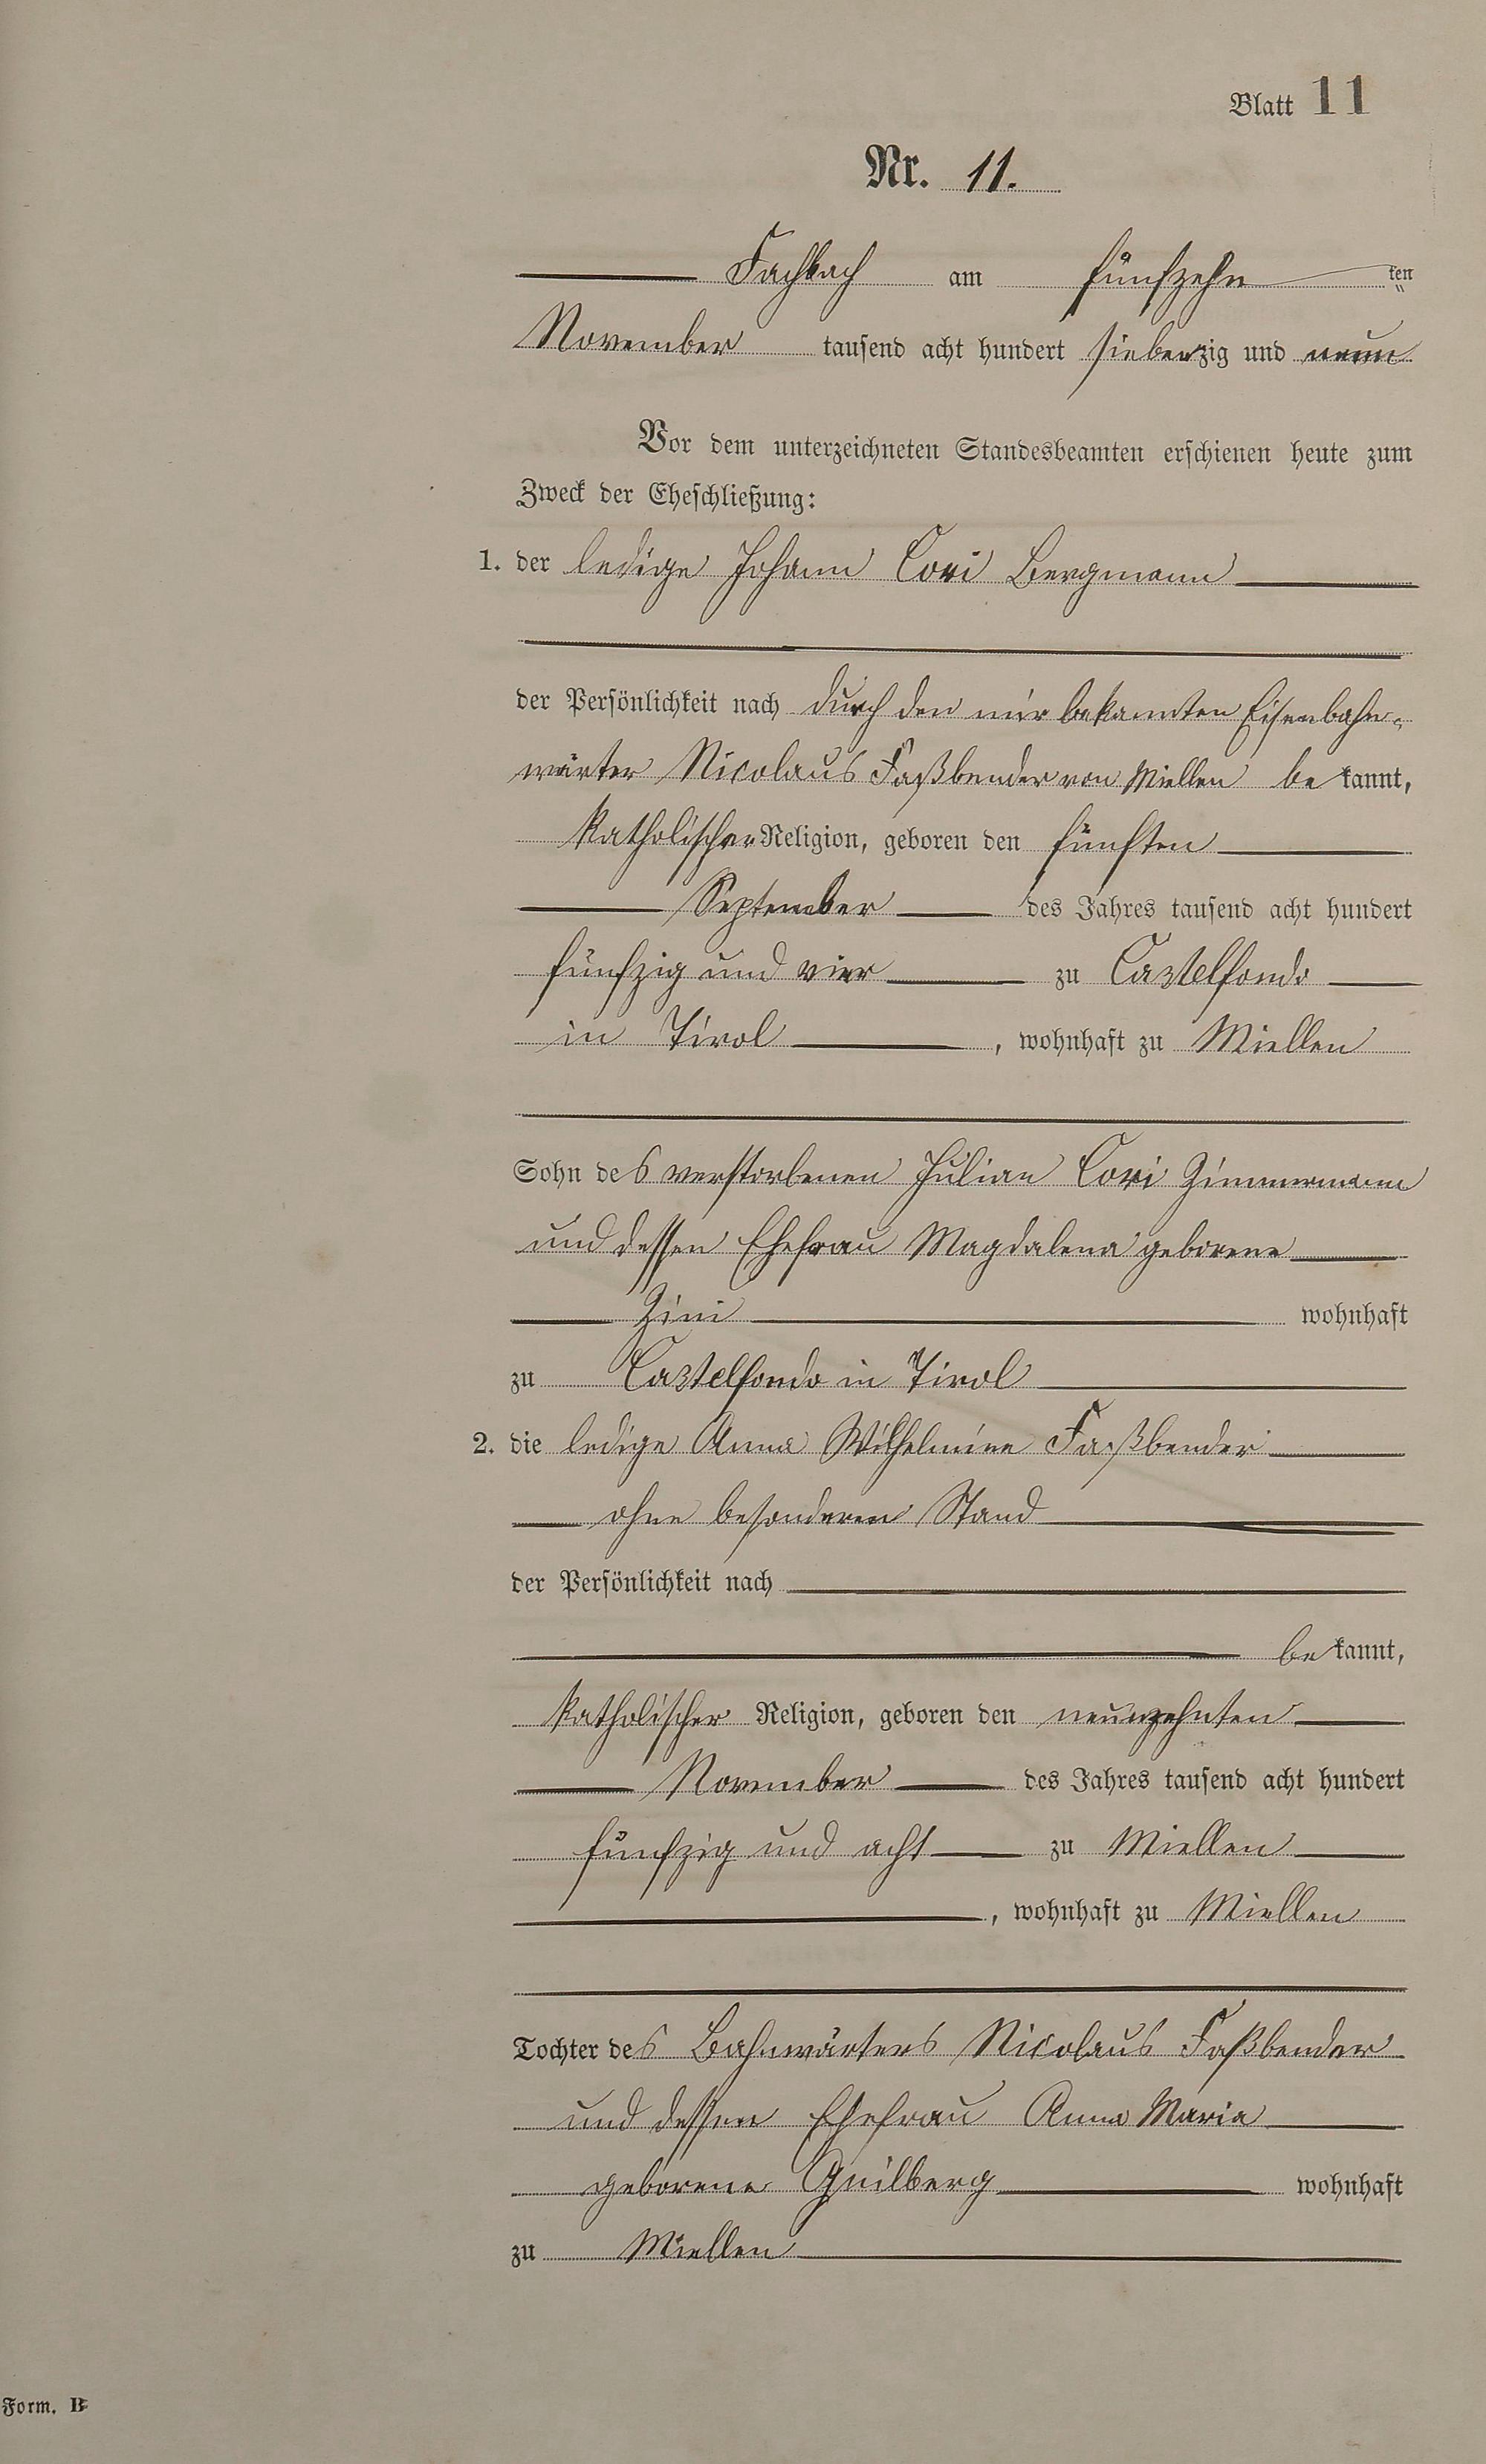 Blatt 11
Nr. 11.
Fachbach am fünfzehn ten
November tausend acht hundert siebenzig und neun
Vor dem unterzeichneten Standesbeamten erschienen heute zum
Zweck der Eheschließung:
1. der ledige Johann Cori Bergmann
der Persönlichkeit nach durch den mir bekannten Eisenbahn-
wärter Nicolaus Faßbender von Miellen be kannt,
katholischer Religion, geboren den fünften
September des Jahres tausend acht hundert
fünfzig und vier zu Castelfondo
in Tirol, wohnhaft zu Miellen
Sohn des verstorbenen Julian Cori Zimmermann
und dessen Ehefrau Magdalena geborene
Zini wohnhaft
zu Castelfondo in Tirol
2. die ledige Anna Wilhelmine Faßbender
ohne besonderen Stand
der Persönlichkeit nach
be kannt,
katholischer Religion, geboren den neunzehnten
November des Jahres tausend acht hundert
fünfzig und acht zu Miellen
, wohnhaft zu Miellen
Tochter des Bahnwärters Nicolaus Faßbender
und dessen Ehefrau Anna Maria
geborene Quilberg wohnhaft
zu Miellen
Form. B